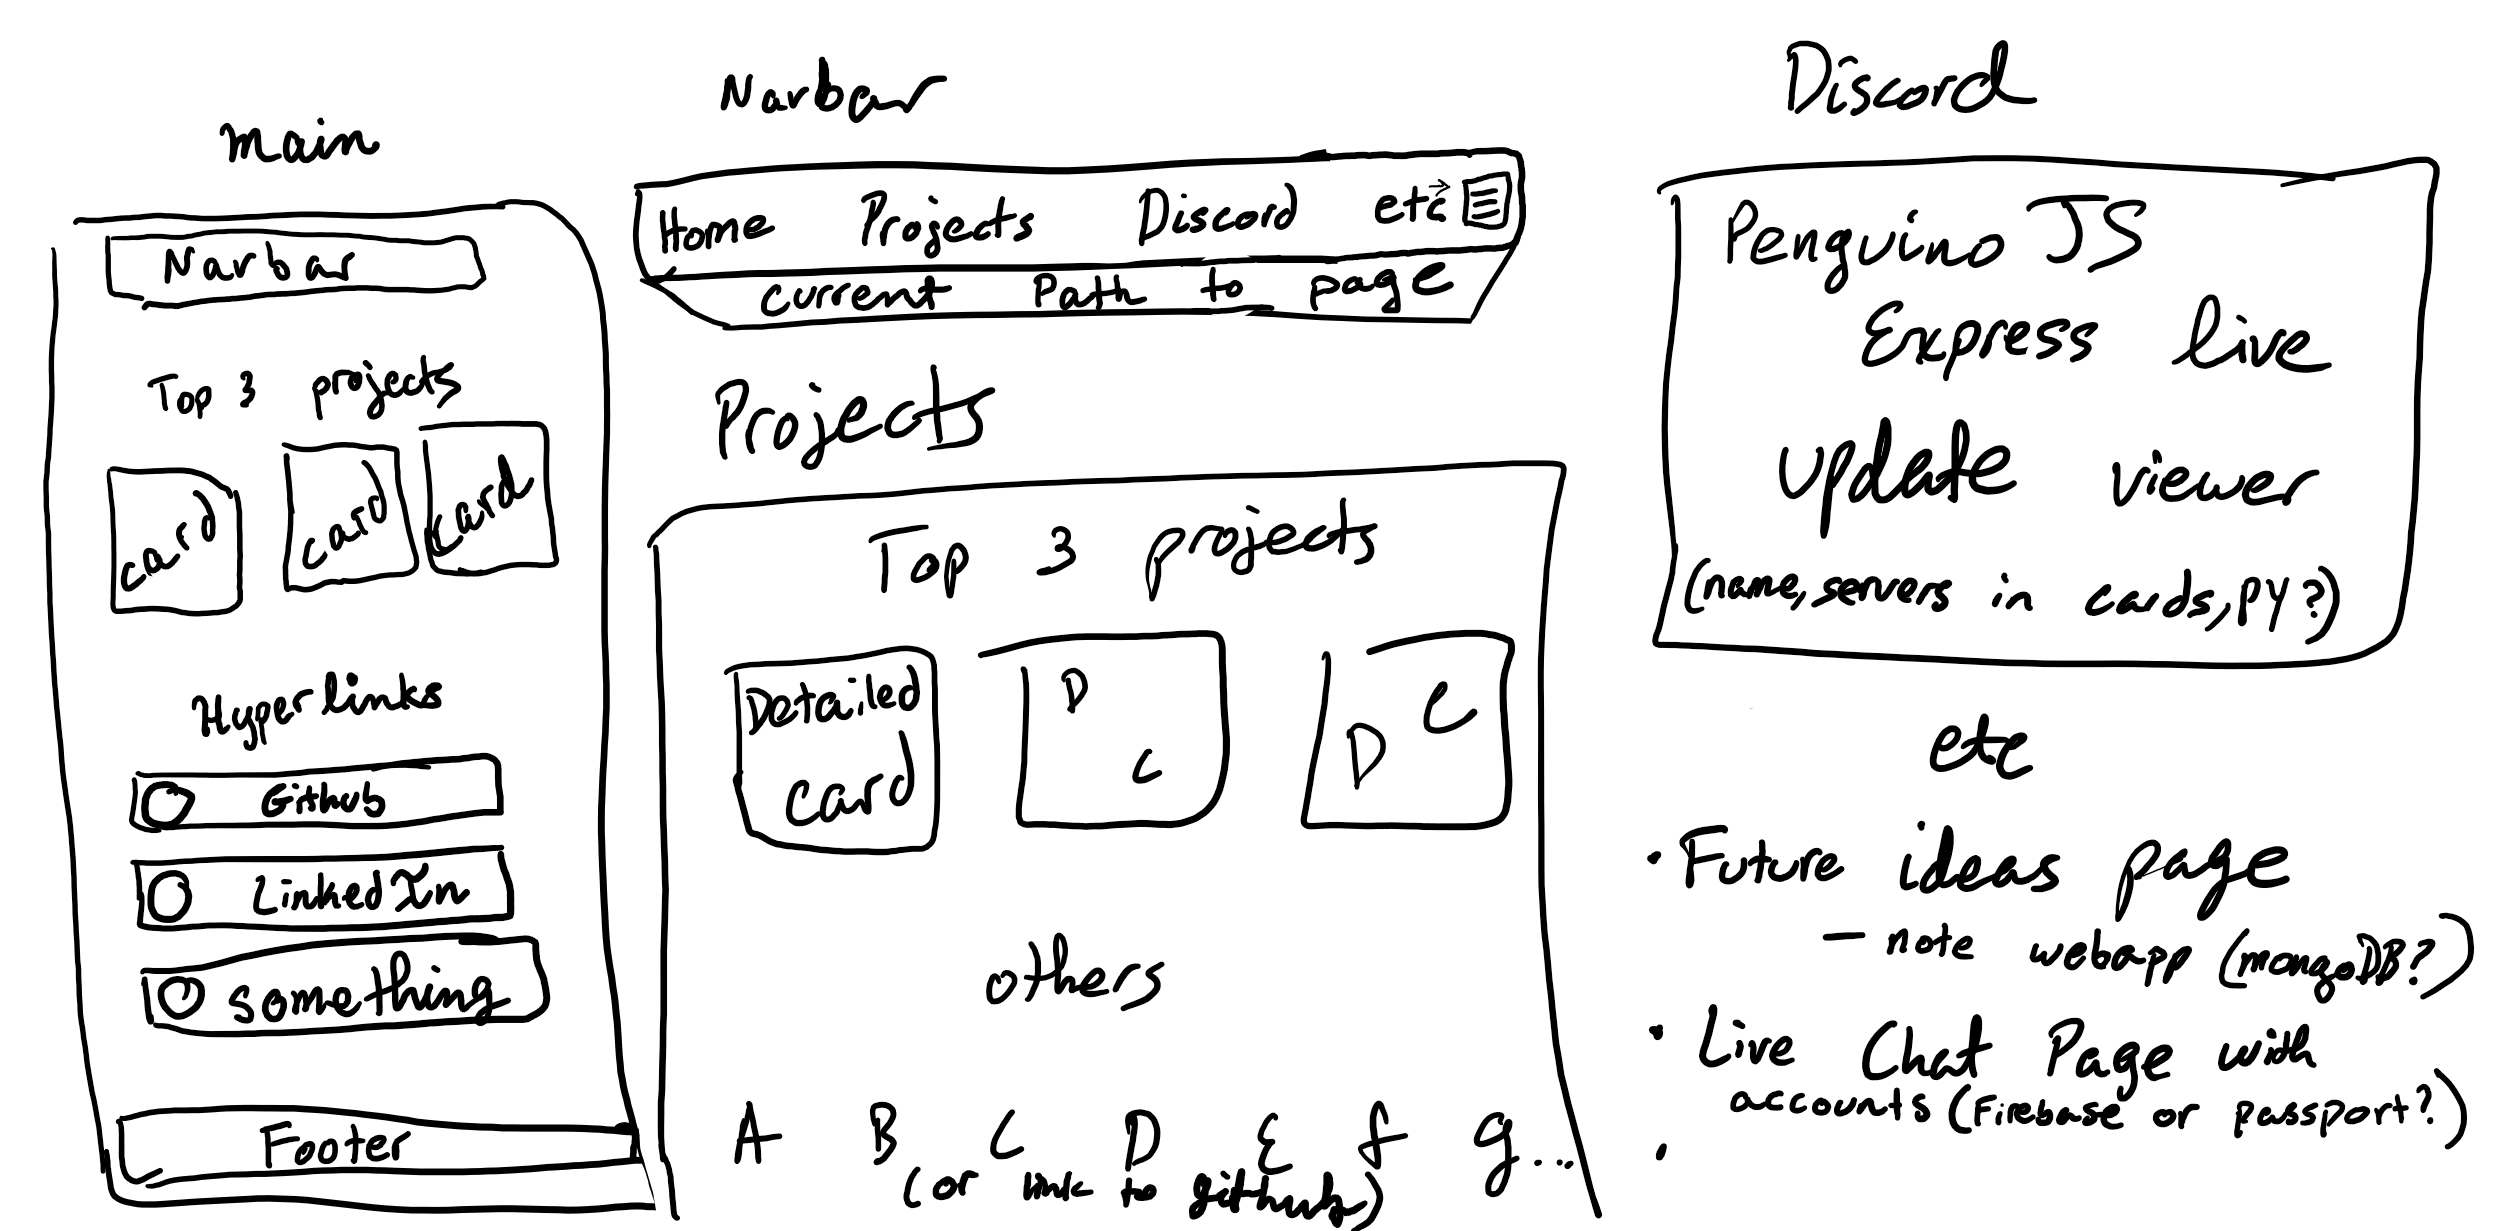 main
Navbar
Top 3 projects
card
card
card
Hyperlinks
Github
Linkedin
something
Footer
Navbar
Home Projects Discord etc
(current path to page)
Projects
Top 3 projects
Detailed
card
D
c
D
c
others
A B C D E F G...
(or link to github)
Discord
Running JS
express live
uptime viewer
(name servers in codespy?)
etc
• Future ideas page
- note webapp (mongoDB?)
• Live Chat Page with
accounts (Firebase or Passport?)